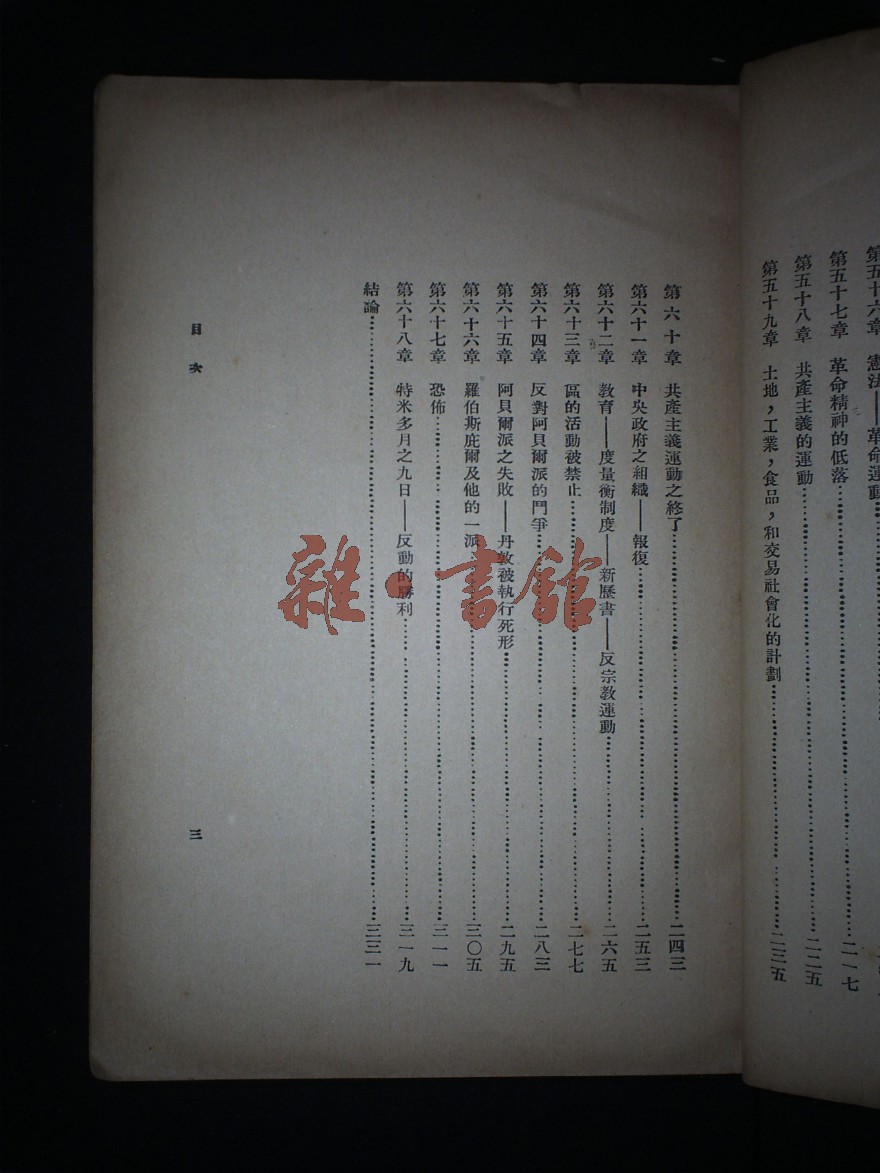 第五十六章 憲法——革命運動
第五十七章 革命精神的低落……二一七
第五十八章 共產主義的運動……二二五
第五十九章 土地，工業，食品，和交易社會化的計劃……二三五
第六十章 共產主義運動之終了……二四三
第六十一章 中央政府之組織——報復……二五三
第六十二章 教育——度量衡制度——新歷書——反宗教運動……二六五
第六十三章 區的活動被禁止……二七七
第六十四章 反對阿貝爾派的鬥爭……二八三
第六十五章 阿貝爾派之失敗——丹敦被執行死形……二九五
第六十六章 羅伯斯庇爾及他的一派……三〇五
第六十七章 恐佈……三一一
第六十八章 特米多月之九日——反動的勝利……三一九
結論……三三一
目次
三
雜·書館